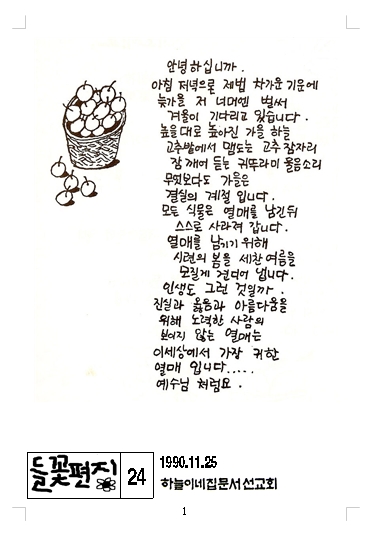 안녕하십니까.
아침 저녁으로 제법 차가운 기운에
늦가을 저 너머엔 벌써
겨울이 기다리고 있습니다.
높을대로 높아진 가을 하늘
고추밭에서 맴도는 고추 잠자리
잠깨어 듣는 귀뚜라미 울음소리
무엇보다도 가을은
결실의 계절 입니다.
모든 식물은 열매를 남긴뒤
스스로 사라져 갑니다.
열매를 남기기 위해
시련의 봄을 세찬 여름을
모질게 견디어 냅니다.
인생도 그런 것일까.
진실과 옳음과 아름다움을
위해 노력한 사람의
보이지 않는 열매는
이세상에서 가장 귀한
열매 입니다.....
예수님 처럼요.
들꽃편지
24
1990.11.25
하늘이네집문서선교회
1